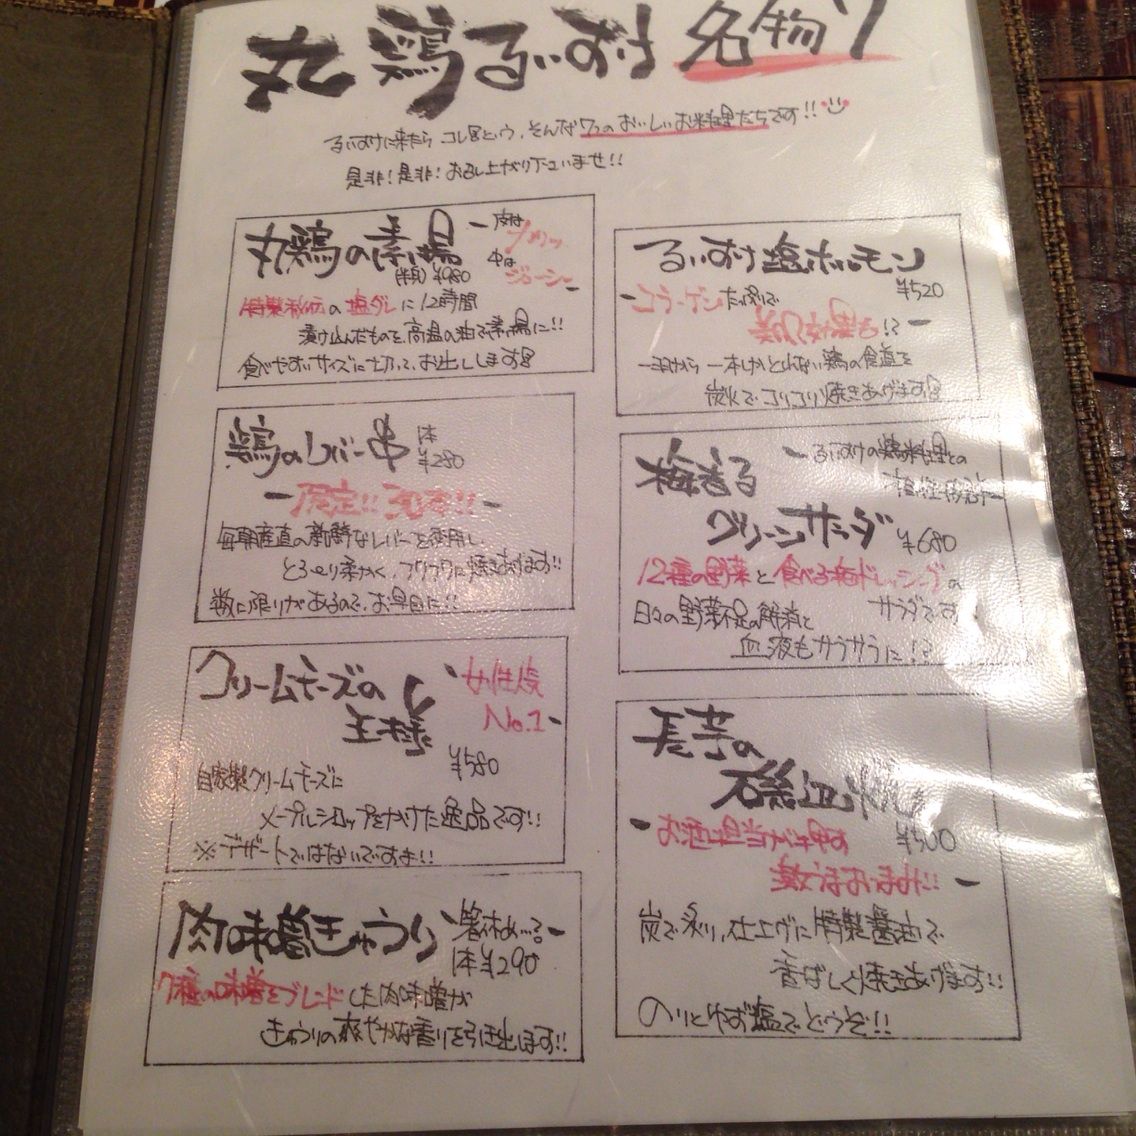 丸鶏るいすけ名物7
るいすけに来たらコレ!!という、そんな7つのおいしいお料理たちです!!
是非!是非!お召し上がり下さいませ!!
丸鶏の素揚
(半身)¥980
ー肉は
中は
ジューシーー
特製秘伝の塩ダレに12時間
漬け込んだものを、高温の油で素揚に!!
食べやすいサイズに切って、お出しします!!
鶏のレバー串
1本
¥280
ー限定!!
毎朝産直の新鮮なレバーを使用し、
とろ〜り柔かく、フワフワに焼きあげます!!
数に限りがあるので、お早目に!!
クリームチーズの
王様
女性人気
No.1ー
¥580
自家製クリームチーズに
メープルシロップをかけた逸品です!!
※デザートではないですよ!!
肉味噌きゅうり
1本¥290
7種の味噌をブレンドした肉味噌が
きゅうりの爽やかな香りを引き出します!!
るいすけ塩ホルモン
¥520
ーコラーゲンたっぷりで
美肌効果も!?ー
一羽から一本しかとれない鶏の食道を
炭火でコリコリ焼きあげます!!
梅香る
グリーンサラダ
ーるいすけの鶏料理との
¥680
12種の野菜と食べる梅ドレッシングの
サラダです
日々の野菜不足の解消と
血液もサラサラに!?
長芋の
磯辺焼
¥500
ーお酒担当が千鳥す
激うまおつまみ!!ー
炭で炙り、仕上げに特製醤油で
香ばしく焼きあげます!!
のりとゆず塩でどうぞ!!